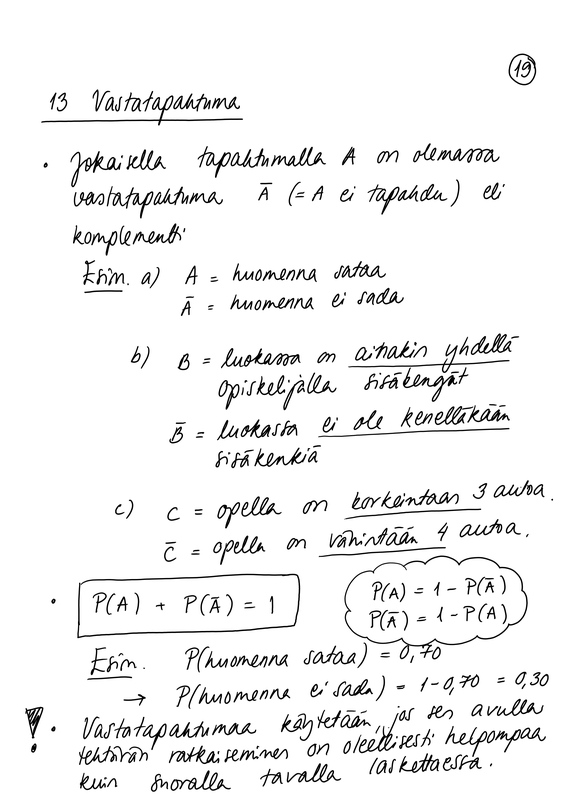 19
13 Vastatapahtuma
• Jokaisella tapahtumalla A on olemassa
vastatapahtuma Ā (= A ei tapahdu) eli
komplementti
Esim. a) A = huomenna sataa
Ā = huomenna ei sada
b) B = luokassa on ainakin yhdellä
opiskelijalla sisäkengät
B̄ = luokassa ei ole kenelläkään
sisäkenkiä
c) C = opella on korkeintaan 3 autoa.
C̄ = opella on vähintään 4 autoa.
• P(A) + P(Ā) = 1
P(A) = 1 - P(Ā)
P(Ā) = 1 - P(A)
Esim. P(huomenna sataa) = 0,70
→ P(huomenna ei sada) = 1-0,70 = 0,30
! • Vastatapahtumaa käytetään, jos sen avulla
tehtävän ratkaiseminen on oleellisesti helpompaa
kuin suoralla tavalla laskettaessa.